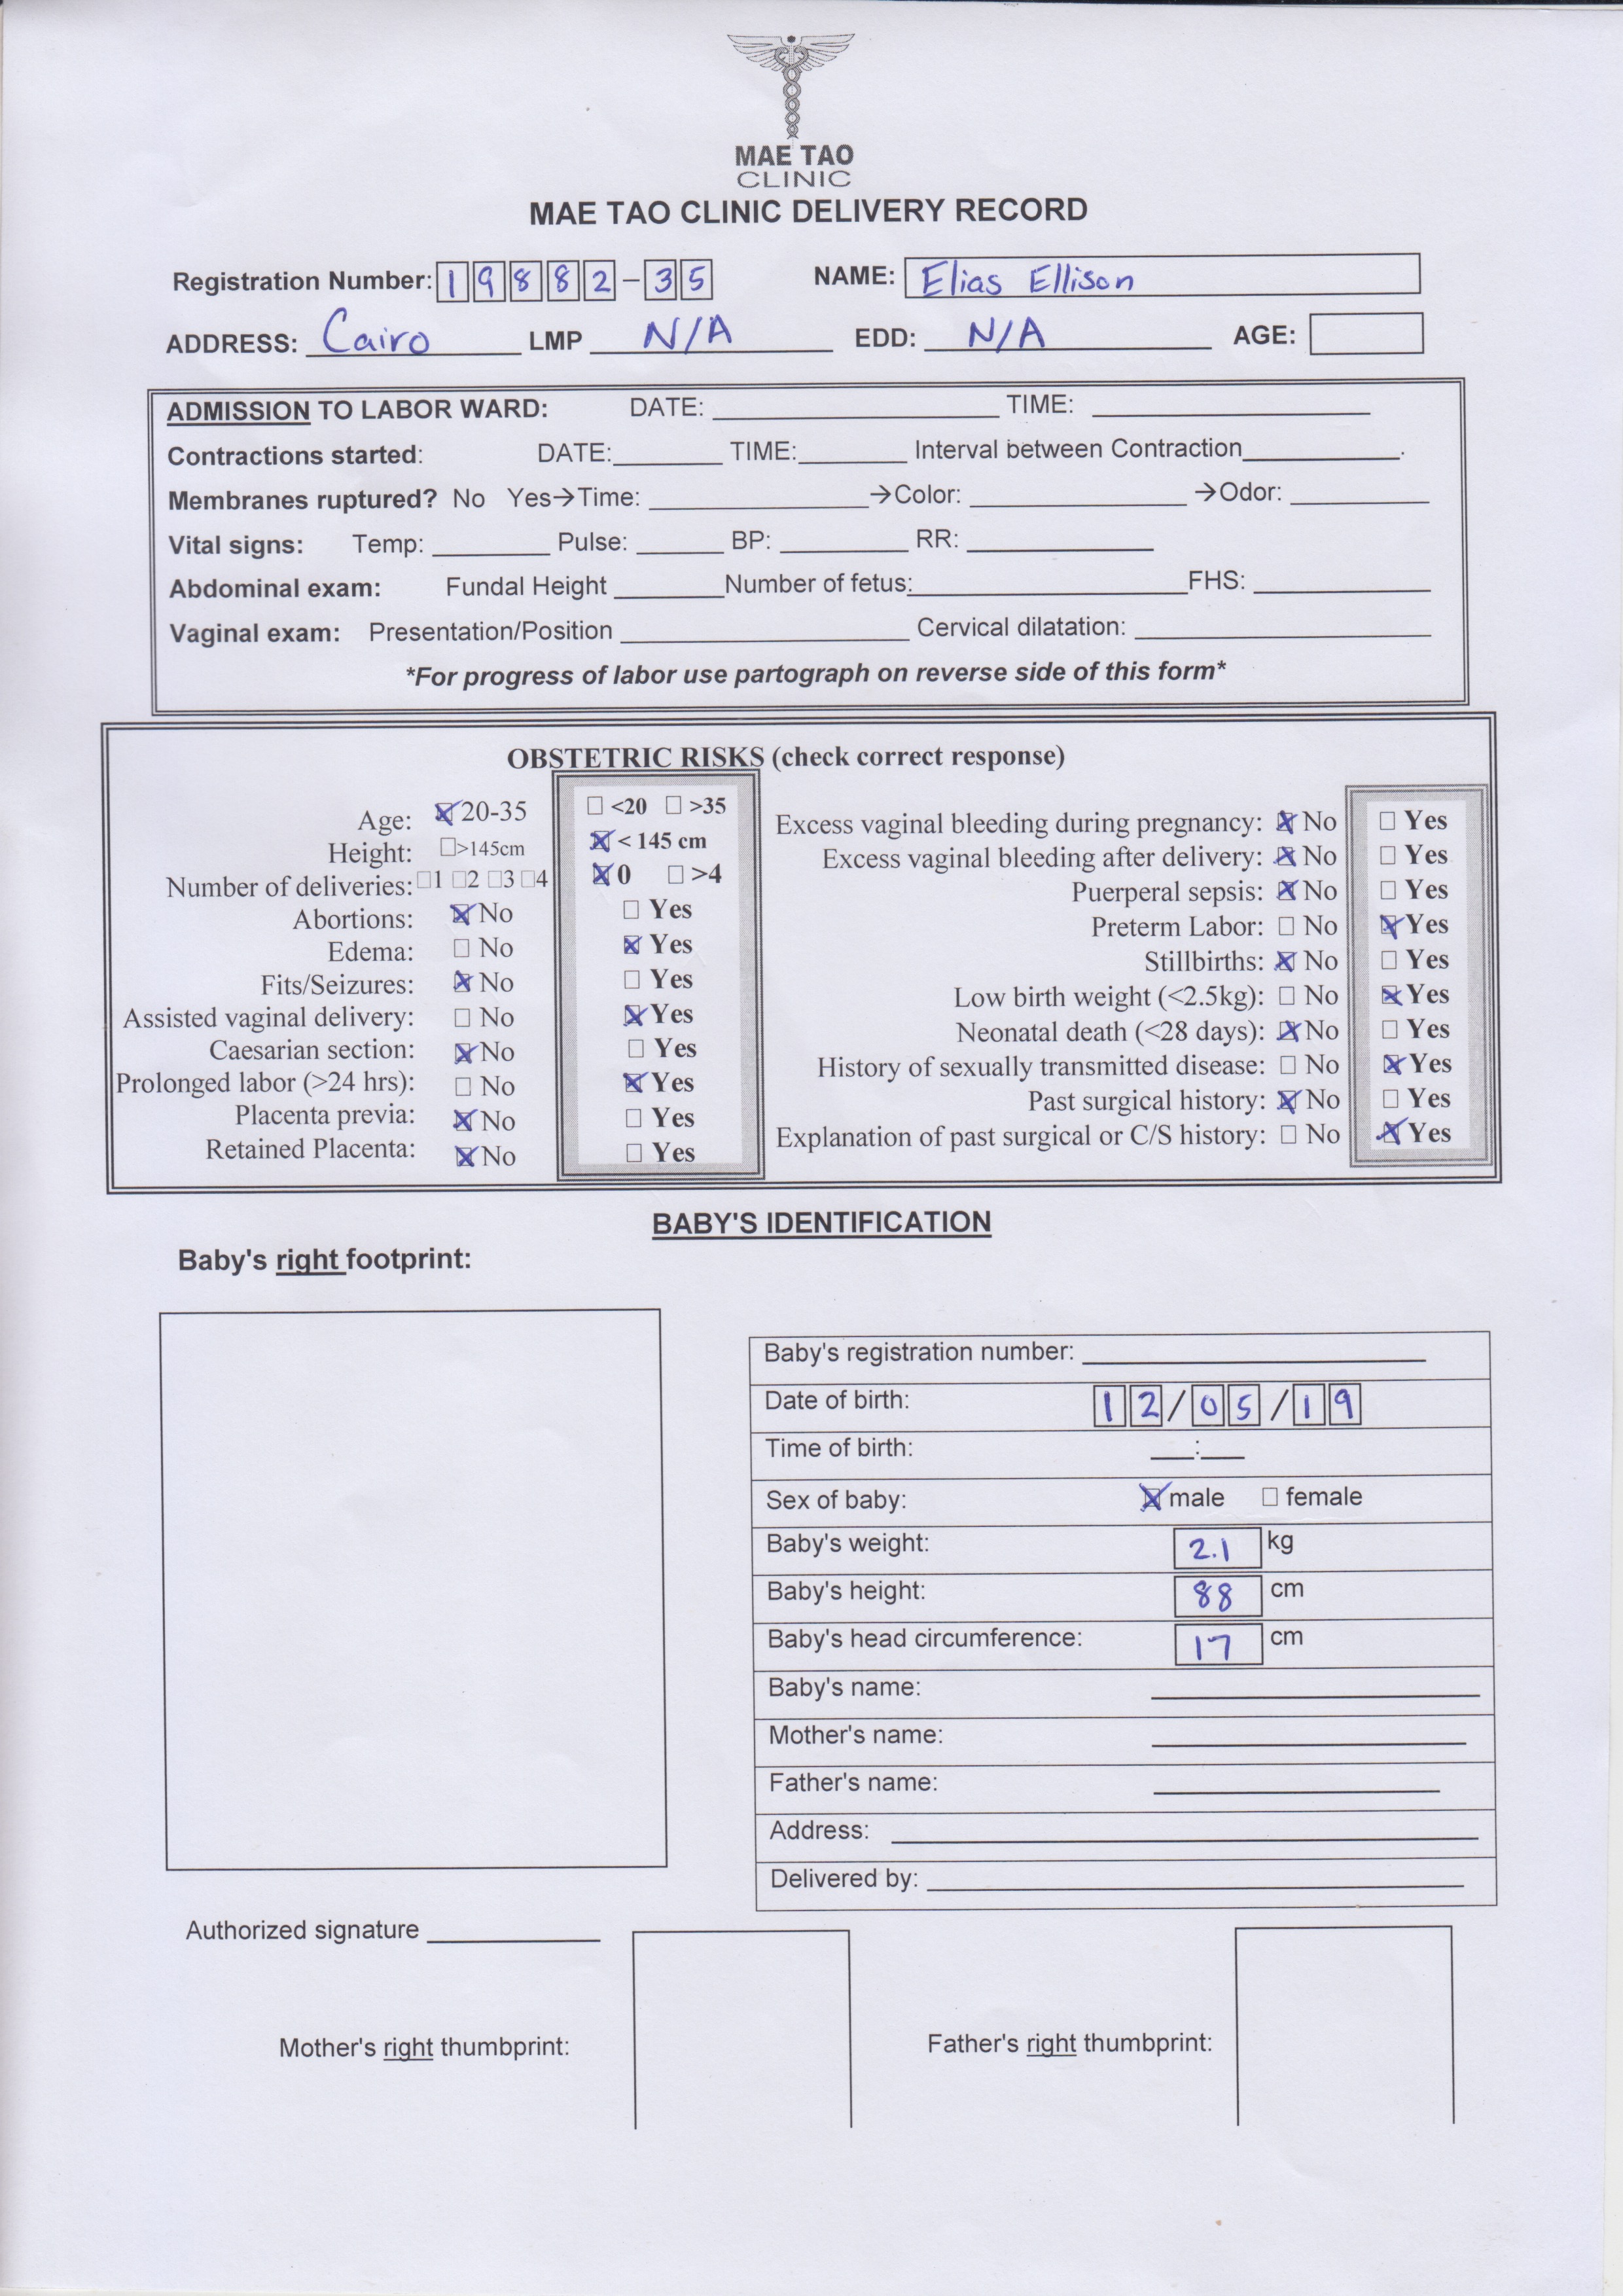 MAE TAO
CLINIC
MAE TAO CLINIC DELIVERY RECORD
Registration Number: 19882-35 NAME: Elias Ellison
ADDRESS: Cairo LMP N/A EDD: N/A AGE:
ADMISSION TO LABOR WARD: DATE: TIME:
Contractions started: DATE: TIME: Interval between Contraction .
Membranes ruptured? No Yes→Time: →Color: →Odor:
Vital signs: Temp: Pulse: BP: RR:
Abdominal exam: Fundal Height Number of fetus: FHS:
Vaginal exam: Presentation/Position Cervical dilatation:
*For progress of labor use partograph on reverse side of this form*
OBSTETRIC RISKS (check correct response)
Age: ☒ 20-35 ☐ <20 ☐ >35
Height: ☐ >145cm ☒ < 145 cm
Number of deliveries: ☐1 ☐2 ☐3 ☐4 ☒ 0 ☐ >4
Abortions: ☒ No ☐ Yes
Edema: ☐ No ☒ Yes
Fits/Seizures: ☒ No ☐ Yes
Assisted vaginal delivery: ☐ No ☒ Yes
Caesarian section: ☒ No ☐ Yes
Prolonged labor (>24 hrs): ☐ No ☒ Yes
Placenta previa: ☒ No ☐ Yes
Retained Placenta: ☒ No ☐ Yes
Excess vaginal bleeding during pregnancy: ☒ No ☐ Yes
Excess vaginal bleeding after delivery: ☒ No ☐ Yes
Puerperal sepsis: ☒ No ☐ Yes
Preterm Labor: ☐ No ☒ Yes
Stillbirths: ☒ No ☐ Yes
Low birth weight (<2.5kg): ☐ No ☒ Yes
Neonatal death (<28 days): ☒ No ☐ Yes
History of sexually transmitted disease: ☐ No ☒ Yes
Past surgical history: ☒ No ☐ Yes
Explanation of past surgical or C/S history: ☐ No ☒ Yes
BABY'S IDENTIFICATION
Baby's right footprint:
Baby's registration number:
Date of birth: 12/05/19
Time of birth: :
Sex of baby: ☒ male ☐ female
Baby's weight: 2.1 kg
Baby's height: 88 cm
Baby's head circumference: 17 cm
Baby's name:
Mother's name:
Father's name:
Address:
Delivered by:
Authorized signature
Mother's right thumbprint: Father's right thumbprint: